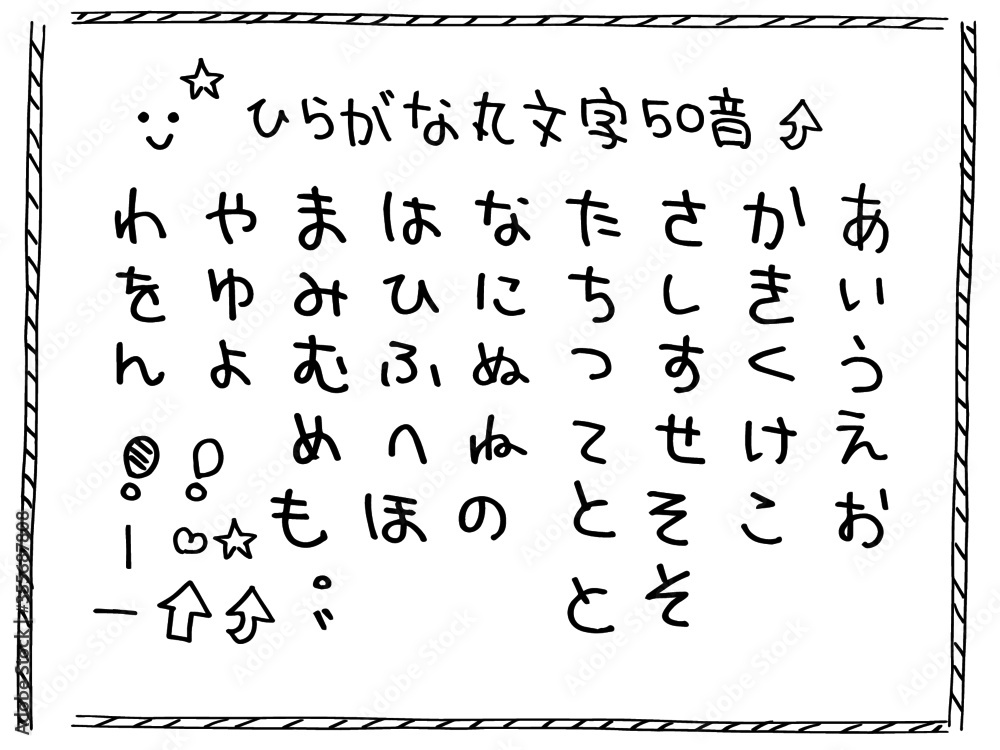 ひらがな丸文字50音
あいうえお
かきくけこ
さしすせそそ
たちつてとと
なにぬねの
はひふへほ
まみむめも
やゆよ
わをん
Adobe Stock